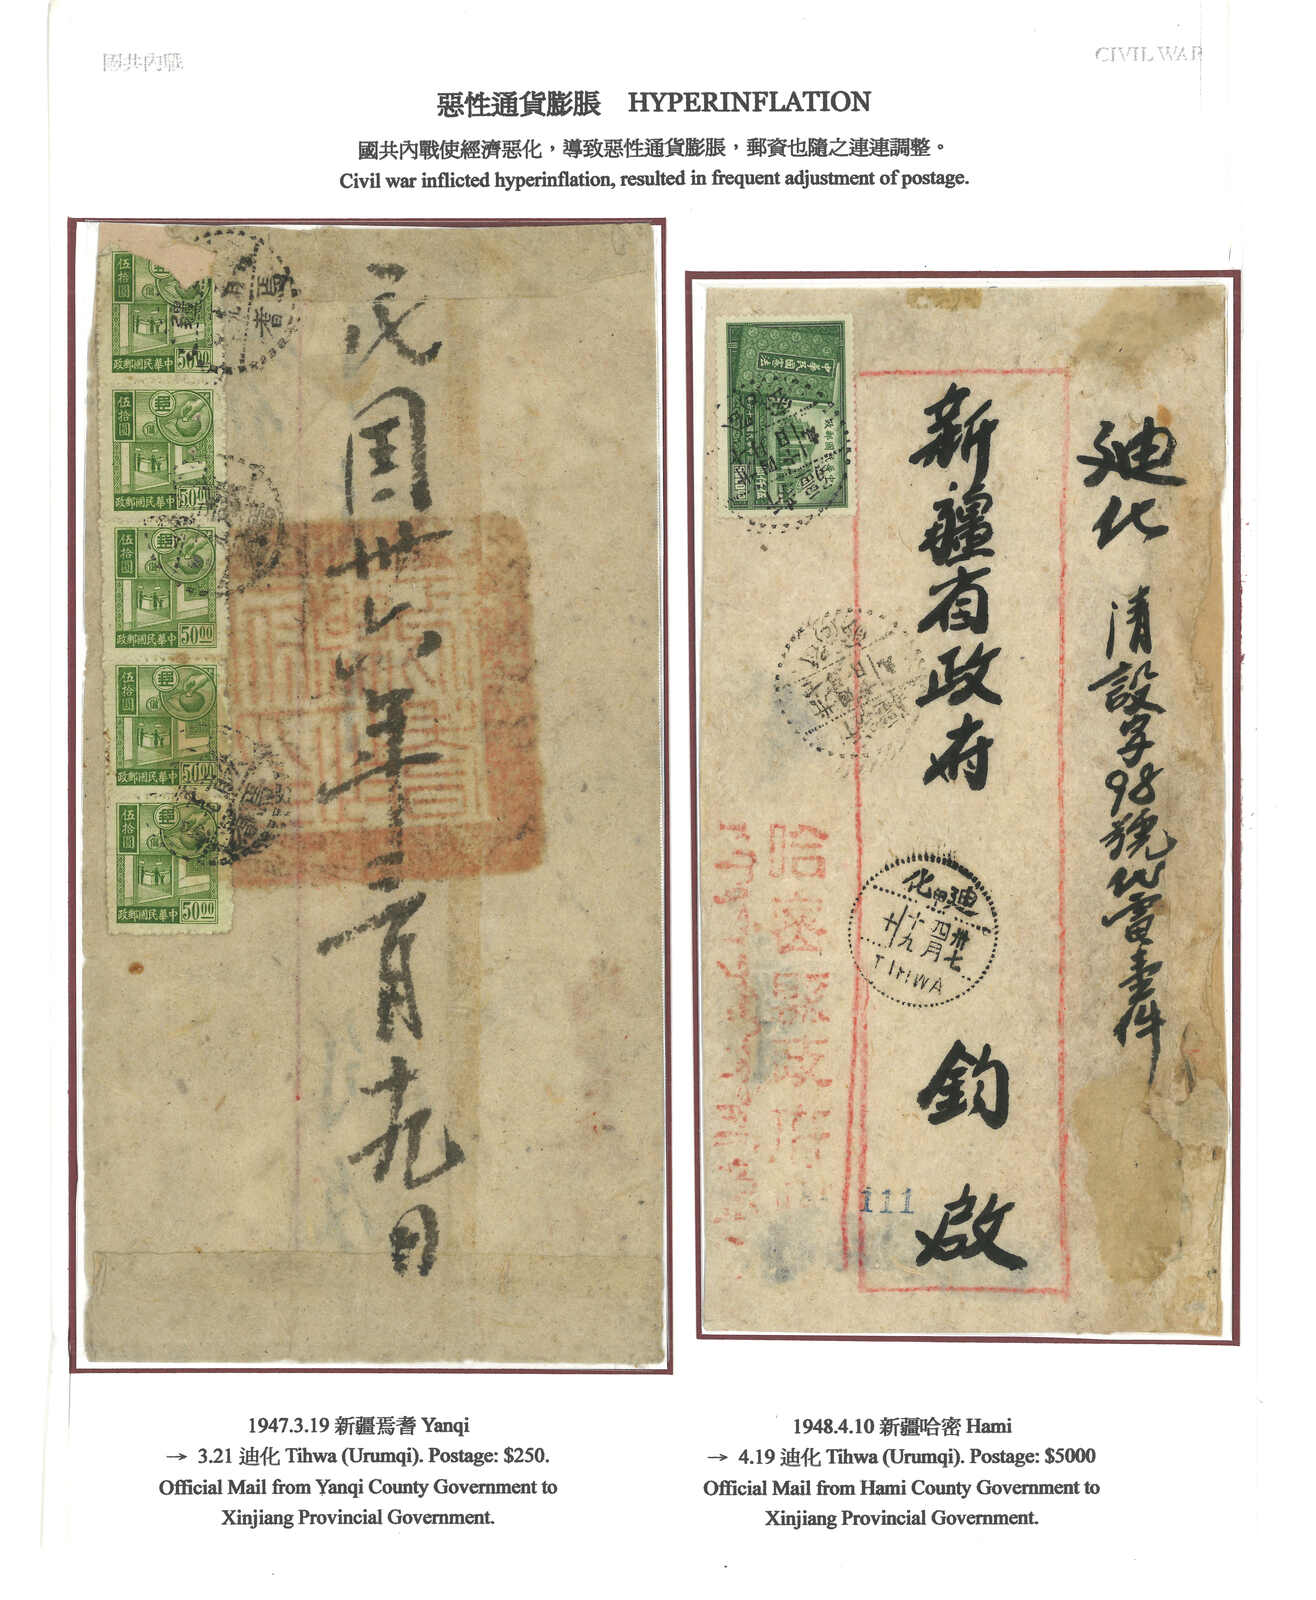 國共內戰
CIVIL WAR
惡性通貨膨脹 HYPERINFLATION
國共內戰使經濟惡化，導致惡性通貨膨脹，郵資也隨之連連調整。
Civil war inflicted hyperinflation, resulted in frequent adjustment of postage.
伍拾圓
政郵國民華中 5000
伍拾圓
郵
儲
政郵國民華中 5000
伍拾圓
郵
儲
政郵國民華中 5000
伍拾圓
郵
儲
政郵國民華中 5000
伍拾圓
郵
儲
政郵國民華中 5000
焉耆
民囯卅六年三月十九日
中華民國憲法
迪化 清設字98號代電壹件
新疆省政府 鈞啟
哈密縣政府
迪化
卅七
四月
十九
TIHWA
111
1947.3.19 新疆焉耆 Yanqi
→ 3.21 迪化 Tihwa (Urumqi). Postage: $250.
Official Mail from Yanqi County Government to
Xinjiang Provincial Government.
1948.4.10 新疆哈密 Hami
→ 4.19 迪化 Tihwa (Urumqi). Postage: $5000
Official Mail from Hami County Government to
Xinjiang Provincial Government.